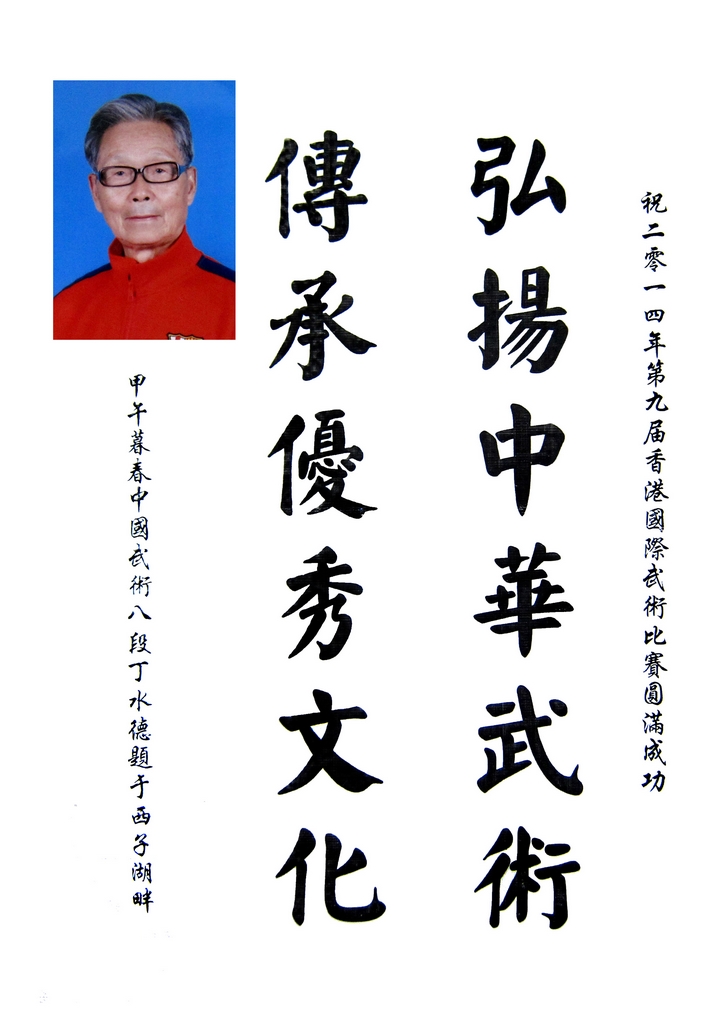 祝二零一四年第九届香港國際武術比賽圓滿成功
弘揚中華武術
傳承優秀文化
甲午暮春中國武術八段丁水德題于西子湖畔